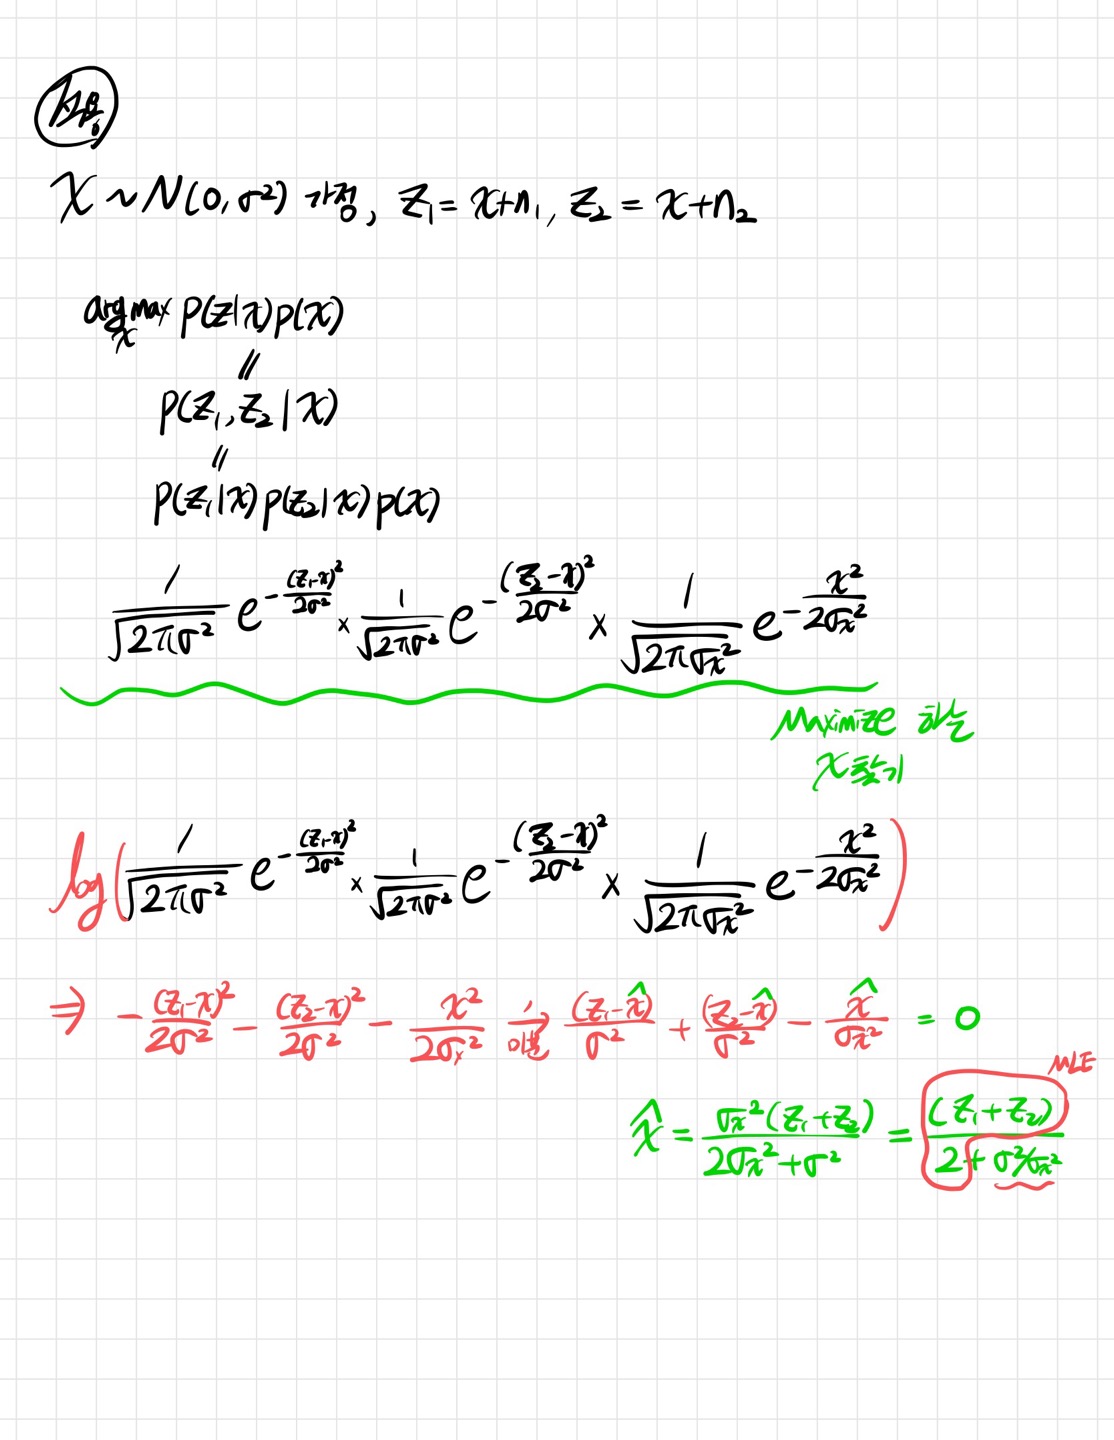 x ~ N(0, σ²) 가정, z₁ = x+n₁, z₂ = x+n₂
argmax p(z|x)p(x)
x
//
p(z₁, z₂ | x)
//
p(z₁|x) p(z₂|x) p(x)
1/√(2πσ²) e^(-(z₁-x)²/2σ²) × 1/√(2πσ²) e^(-(z₂-x)²/2σ²) × 1/√(2πσx²) e^(-x²/2σx²)
Maximize 하는
x 찾기
log(1/√(2πσ²) e^(-(z₁-x)²/2σ²) × 1/√(2πσ²) e^(-(z₂-x)²/2σ²) × 1/√(2πσx²) e^(-x²/2σx²))
⇒ -(z₁-x)²/2σ² - (z₂-x)²/2σ² - x²/2σx² 미분 → (z₁-x̂)/σ² + (z₂-x̂)/σ² - x̂/σx² = 0
MLE
x̂ = σx²(z₁+z₂)/(2σx²+σ²) = (z₁+z₂)/(2+σ²/σx²)